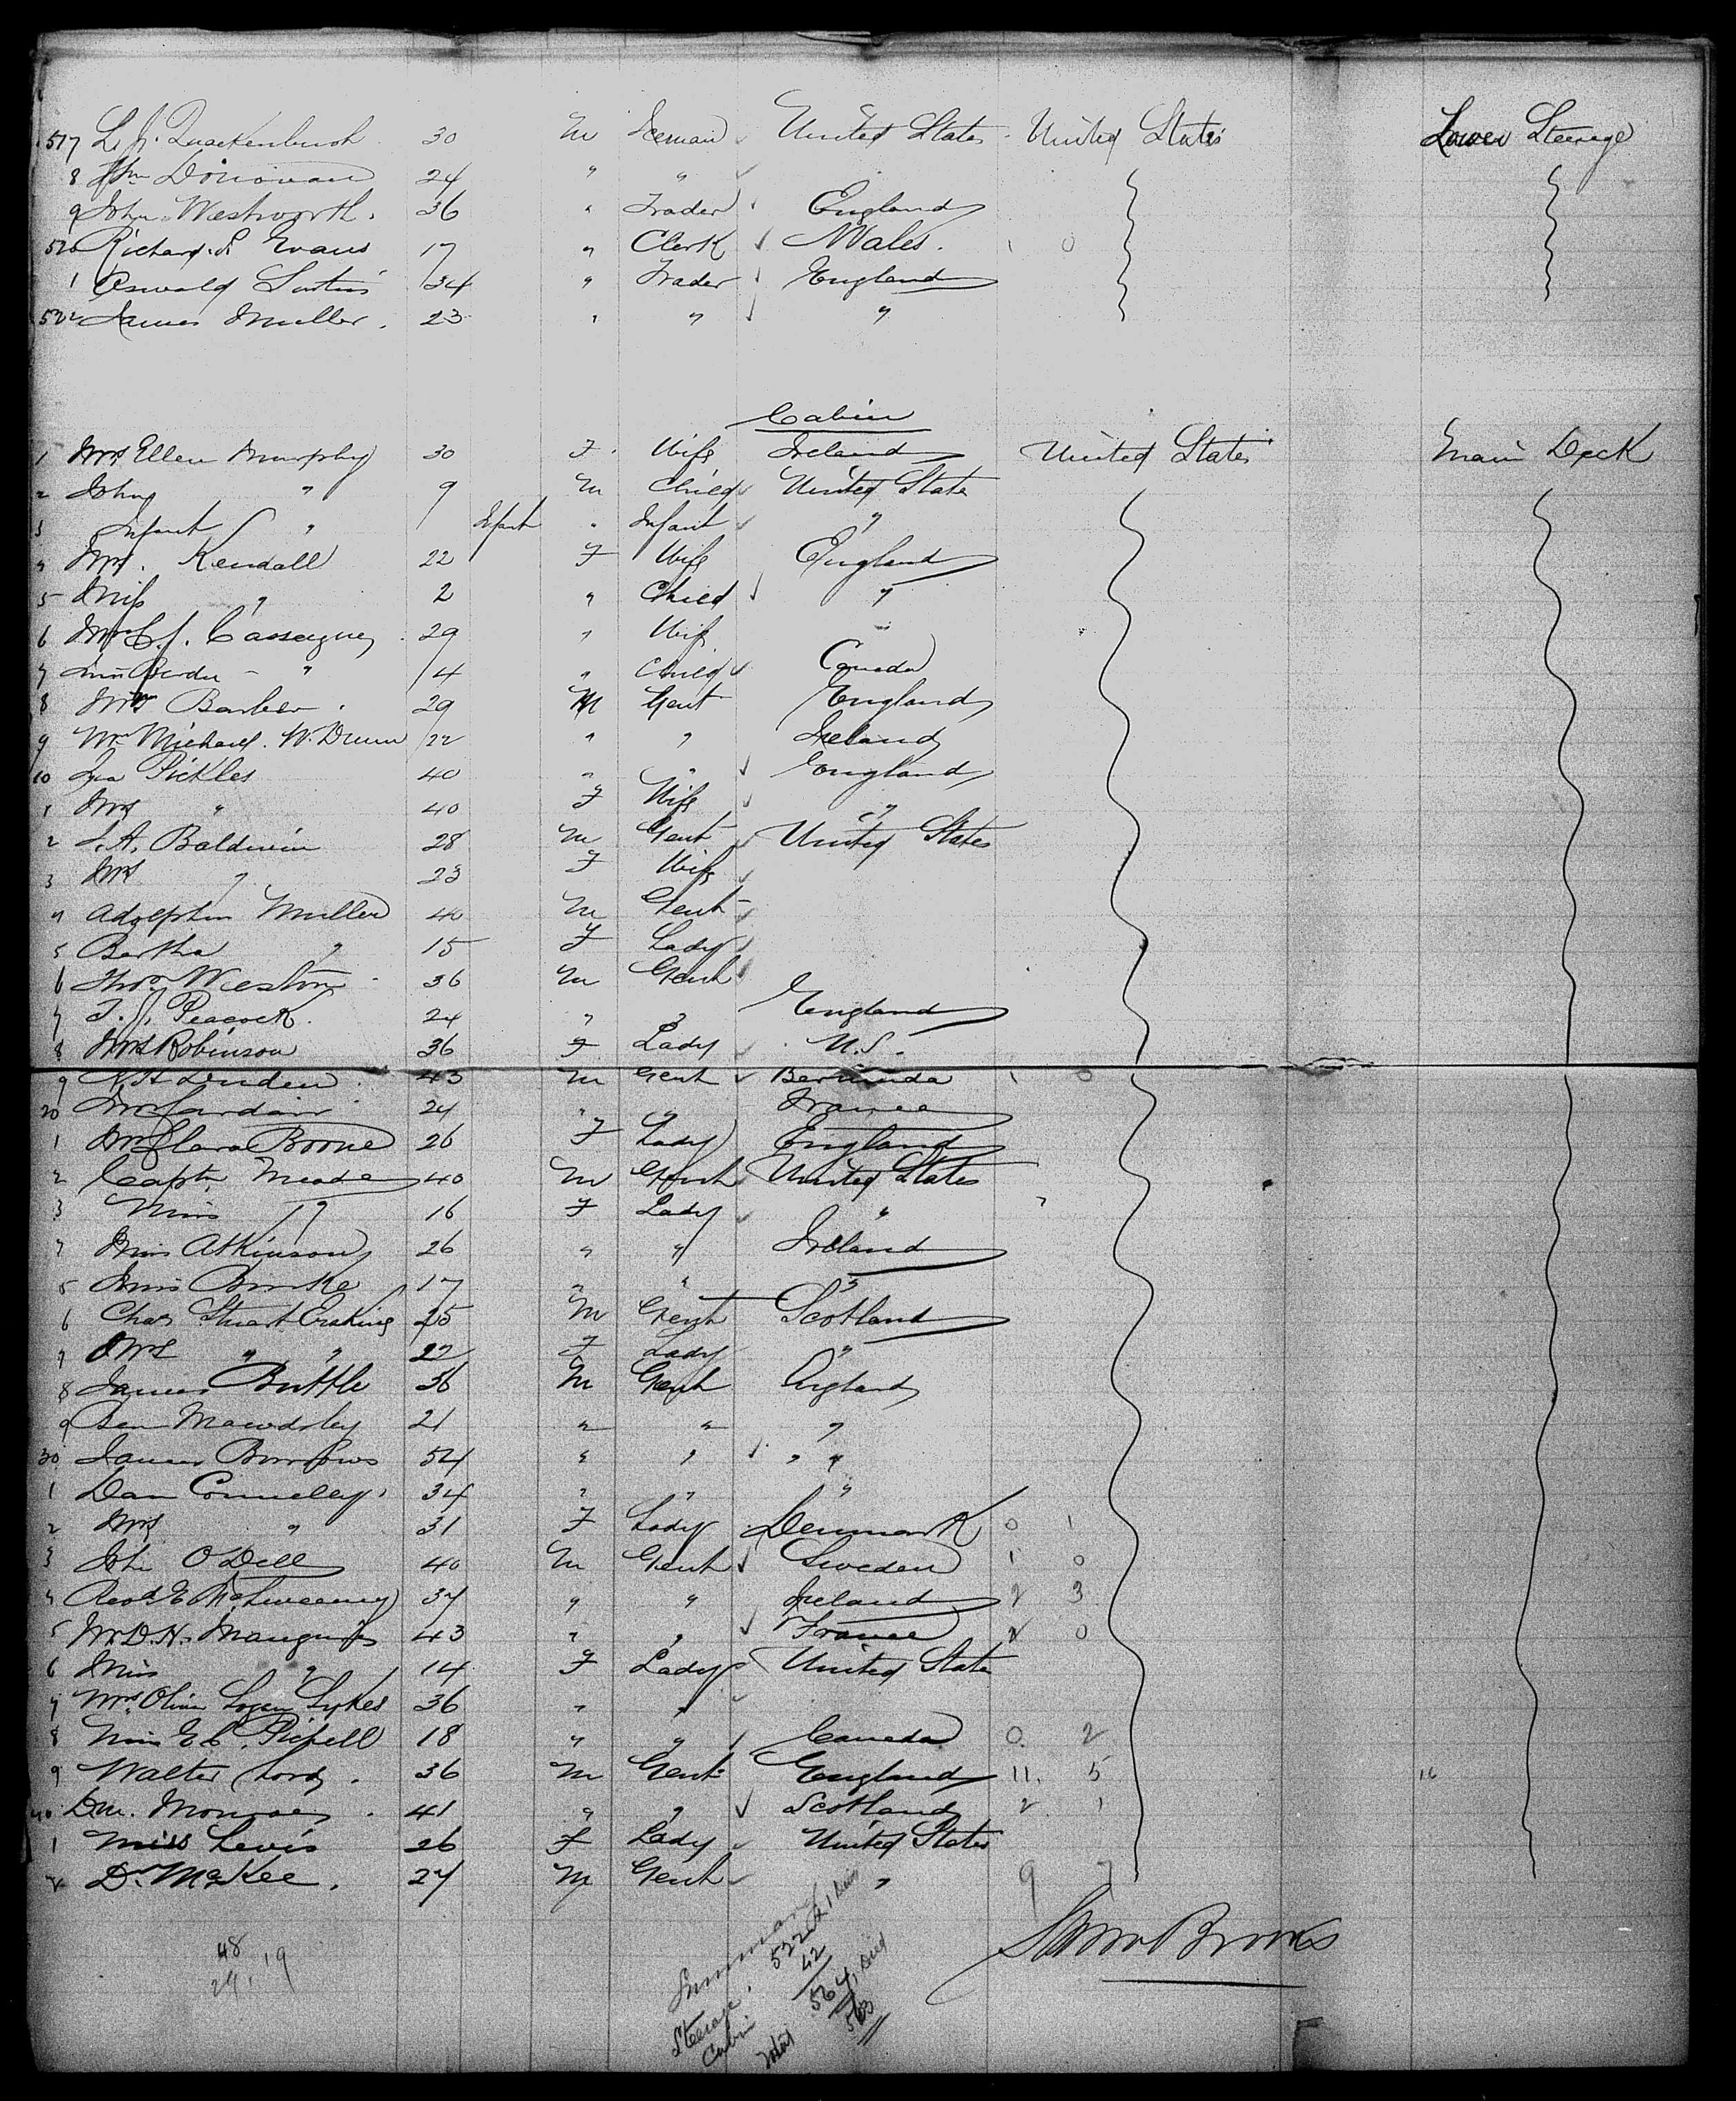 517 L. J. Quackenbush 30 M Seman United States United States Lower Steerage
8 Donovan 24 " "
9 John Westworth. 36 " Trader England
520 Richard. Evans 17 " Clerk Wales. 1 0
1 Oswald 34 " Trader England
522 James Muller. 23 " " "
Cabin
1 Mrs Ellen Murphy 30 F. Wife Ireland United States Main Deck
2 John " 9 M Child United State
3 Infant " Infant " Infant "
4 Mrs. Kendall 22 F Wife England
5 Miss " 2 " Child "
6 Mrs C. J. 29 " Wife "
7 " 4 " Child Canada
8 Barber 29 M Gent England
9 Mr Michael. W. Dunn 22 " " Ireland
10 Pickles 40 " " England
1 Mrs " 40 F Wife "
2 Baldwin 28 M Gent United States
3 Mrs " 23 F Wife
4 Muller 40 M Gent
5 Bertha " 15 F Lady
6 Thos Weston 36 M Gent
7 T. J. Peacock. 24 " " England
8 Mrs Robinson 36 F Lady U.S.
9 43 M Gent Bermuda 1 0
20 24 " " France
1 Clara Boone 26 F Lady England
2 Captn Meade 40 M Gent United States
3 Miss " 16 F Lady "
4 Miss Atkinson 26 " " Ireland
5 Miss 17 " " "
6 Chas Stuart Erskine 25 M Gent Scotland
7 Mrs " " 22 F Lady "
8 James Buttle 36 M Gent England
9 Ben Mawdsley 21 " " "
30 James Burrows 54 " " " "
1 Dan Connelley 34 " " "
2 Mrs " 31 F Lady Denmark 0 1
3 John O'Dell 40 M Gent Sweden 1 0
4 Revd E McSweeney 37 " " Ireland 2 3
5 Mr D. H. 43 " " France 2 0
6 Miss " 14 F Lady United State
7 Mrs Olive Logan Sykes 36 " "
8 Miss E. C. 18 " " Canada 0 2
9 Walter Lord. 36 M Gent England 11. 5 16
40 Monroe. 41 " " Scotland 2 1
1 Miss Lewis 26 F Lady United States
2 Dr. McKee. 27 M Gent " 9 7
48
29. 19
Summary
Steerage. 522 1 Died
Cabin 42
Total 564, 1 Died
563
Brooks